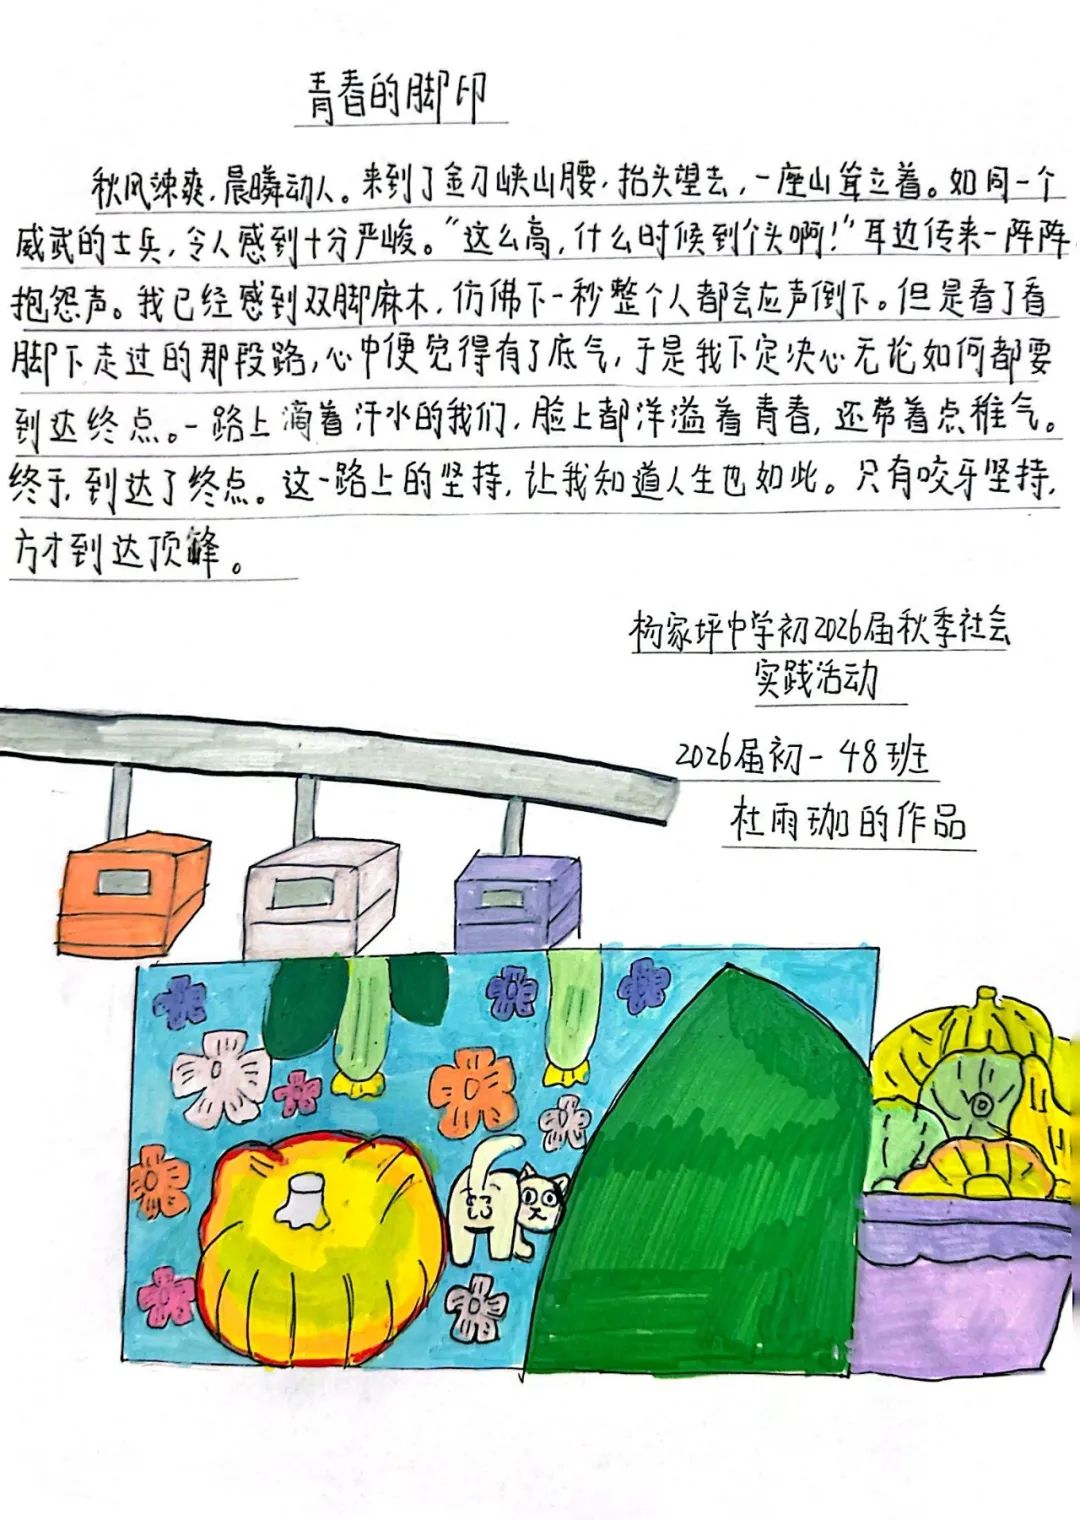 青春的脚印
秋风涑爽，晨曦动人。来到了金刀峡山腰，抬头望去，一座山耸立着。如同一个
威武的士兵，令人感到十分严峻。“这么高，什么时候到个头啊！”耳边传来一阵阵
抱怨声。我已经感到双脚麻木，仿佛下一秒整个人都会应声倒下。但是看了看
脚下走过的那段路，心中便觉得有了底气，于是我下定决心无论如何都要
到达终点。一路上滴着汗水的我们，脸上都洋溢着青春，还带着点稚气。
终于，到达了终点。这一路上的坚持，让我知道人生也如此。只有咬牙坚持，
方才到达顶峰。
杨家坪中学初2026届秋季社会
实践活动
2026届初一48班
杜雨珈的作品